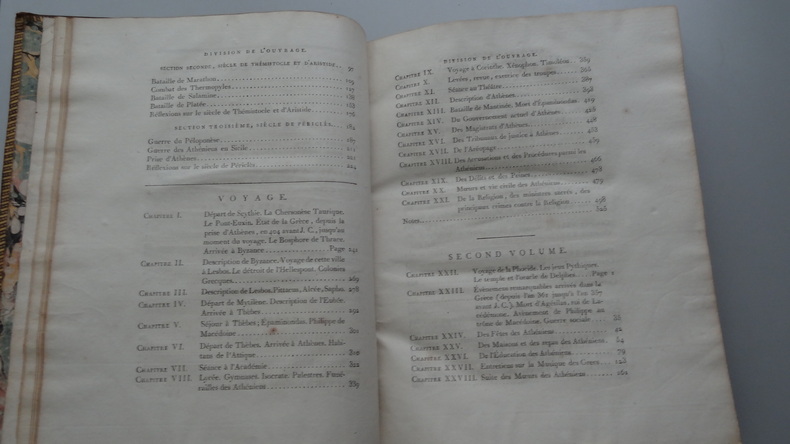 DIVISION DE L'OUVRAGE.
SECTION SECONDE, SIÈCLE DE THÉMISTOCLE ET D'ARISTIDE.
Bataille de Marathon
Combat des Thermopyles
Bataille de Salamine
Bataille de Platée
Réflexions sur le siècle de Thémistocle et d'Aristide
SECTION TROISIÈME, SIÈCLE DE PÉRICLÈS. 184
Guerre du Péloponèse 187
Guerre des Athéniens en Sicile
Prise d'Athènes
Réflexions sur le siècle de Périclès 224
VOYAGE.
CHAPITRE I. Départ de Scythie. La Chersonèse Taurique.
Le Pont-Euxin. État de la Grèce, depuis la
prise d'Athènes, en 404 avant J. C., jusqu'au
moment du voyage. Le Bosphore de Thrace.
Arrivée à Byzance Page 241
CHAPITRE II. Description de Byzance. Voyage de cette ville
à Lesbos. Le détroit de l'Hellespont. Colonies
Grecques 269
CHAPITRE III. Description de Lesbos. Pittacus, Alcée, Sapho. 278
CHAPITRE IV. Départ de Mytilène. Description de l'Eubée.
Arrivée à Thèbes 292
CHAPITRE V. Séjour à Thèbes; Épaminondas. Philippe de
Macédoine
CHAPITRE VI. Départ de Thèbes. Arrivée à Athènes. Habi-
tans de l'Attique
CHAPITRE VII. Séance à l'Académie
CHAPITRE VIII. Lycée. Gymnases. Isocrate. Palestres. Funé-
railles des Athéniens
DIVISION DE L'OUVRAGE.
CHAPITRE IX. Voyage à Corinthe. Xénophon. Timoléon.
CHAPITRE X. Levées, revue, exercice des troupes
CHAPITRE XI. Séance au Théâtre
CHAPITRE XII. Description d'Athènes
CHAPITRE XIII. Bataille de Mantinée. Mort d'Épaminondas
CHAPITRE XIV. Du Gouvernement actuel d'Athènes
CHAPITRE XV. Des Magistrats d'Athènes
CHAPITRE XVI. Des Tribunaux de justice à Athènes
CHAPITRE XVII. De l'Aréopage
CHAPITRE XVIII. Des Accusations et des Procédures parmi les
Athéniens 466
CHAPITRE XIX. Des Délits et des Peines
CHAPITRE XX. Mœurs et vie civile des Athéniens 479
CHAPITRE XXI. De la Religion, des ministres sacrés, des
principaux crimes contre la Religion 498
Notes
SECOND VOLUME.
CHAPITRE XXII. Voyage de la Phocide. Les jeux Pythiques.
Le temple et l'oracle de Delphes Page 1
CHAPITRE XXIII. Événemens remarquables arrivés dans la
Grèce (depuis l'an
avant J. C.). Mort d'Agésilas, roi de La-
cédémone. Avènement de Philippe au
trône de Macédoine. Guerre sociale
CHAPITRE XXIV. Des Fêtes des Athéniens
CHAPITRE XXV. Des Maisons et des repas des Athéniens
CHAPITRE XXVI. De l'Éducation des Athéniens 79
CHAPITRE XXVII. Entretiens sur la Musique des Grecs
CHAPITRE XXVIII. Suite des Mœurs des Athéniens